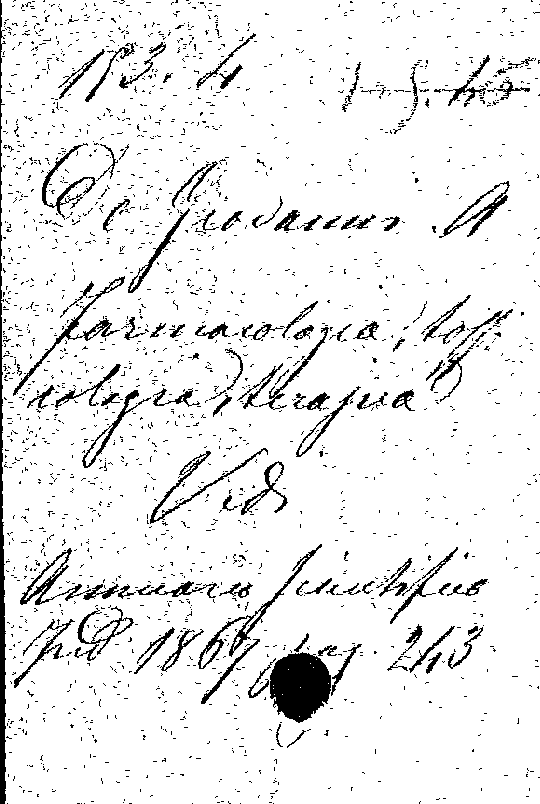 183. 4
De Giovanni A
Farmacologia, tossi
cologia, terapia
Vedi
Annuario Scientifico
Ind 1867 pag. 243